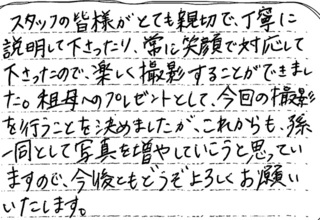 スタッフの皆様がとても親切で、丁寧に
説明して下さったり、常に笑顔で対応して
下さったので、楽しく撮影することができまし
た。祖母へのプレゼントとして、今回の撮影
を行うことを決めましたが、これからも、孫
一同として写真を増やしていこうと思ってい
ますので、今後ともどうぞよろしくお願い
いたします。